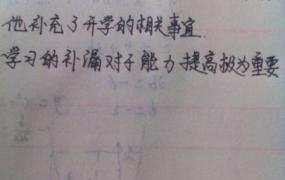 他补充了开学的相关事宜.
学习的补漏对于能力提高极为重要